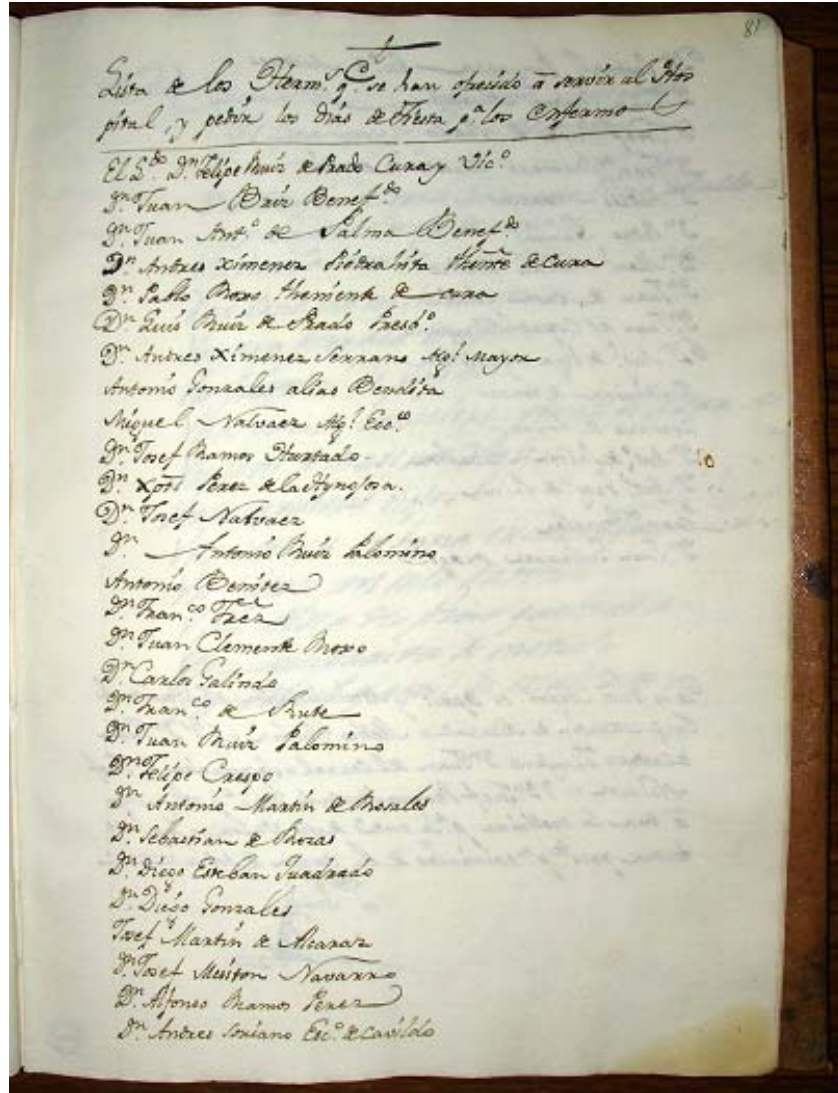 81
Lista de los Herm.s q.e se han ofrecido â servir al Hos
pital, y pedir los dias de fiesta p.a los Enfermos
El L.do D.n Felipe Ruiz de Prado Cura y Vic.o
D.n Juan Ruiz Benef.do
D.n Juan Ant.o de Palma Benef.do
D.n Andres Ximenez Piedrahita thente de Cura
D.n Pablo Roxo theniente de cura
D.n Luis Ruiz de Prado Presb.o
D.n Andres Ximenez Serrano Alg.l Mayor
Antonio Gonzales alias Bendita
Miguel Nalvaez Alg.l Ecc.co
D.n Josef Ramos Hurtado
D.n Xptl Perez de la Hynojosa.
D.n Josef Nalvaez
D.n Antonio Ruiz Palomino
Antonio Benitez
D.n Fran.co
D.n Juan Clemente Roxo
D.n Carlos Galindo
D.n Fran.co de Rute
D.n Juan Ruiz Palomino
D.n Felipe Crespo
D.n Antonio Martin de Rosales
D.n Sebastian de Rozas
D.n Diego Esteban Quadrado
D.n Diego Gonzales
Josef Martin de Alcaraz
D.n Josef Navarro
D.n Alfonso Ramos Perez
D.n Andres Soriano Esc.o de Cavildo